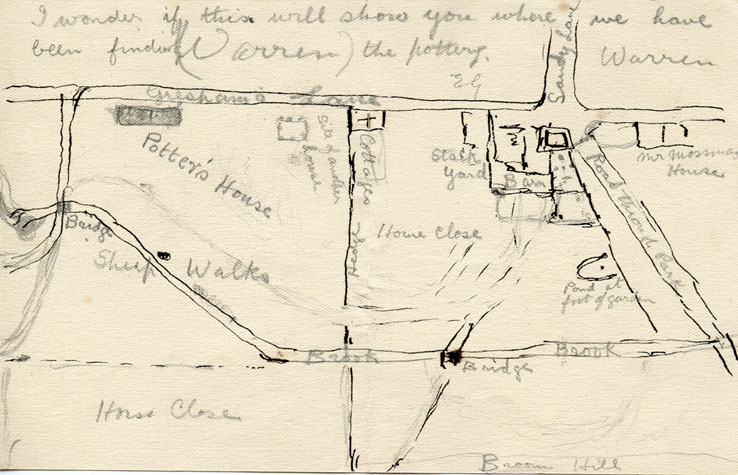 I wonder if this will show you where we have
been finding (Warren) the pottery.
EG
Sandy Lane
Warren
Gresham's Lane
Potter's House
Site of another house
Cottages
Stack Yard
Barn
Mr Mossman House
Road through Park
Hedge
Home Close
Bridge
Sheep Walks
Pond at foot of garden
Brook
Brook
Bridge
Horse Close
Broom Hill